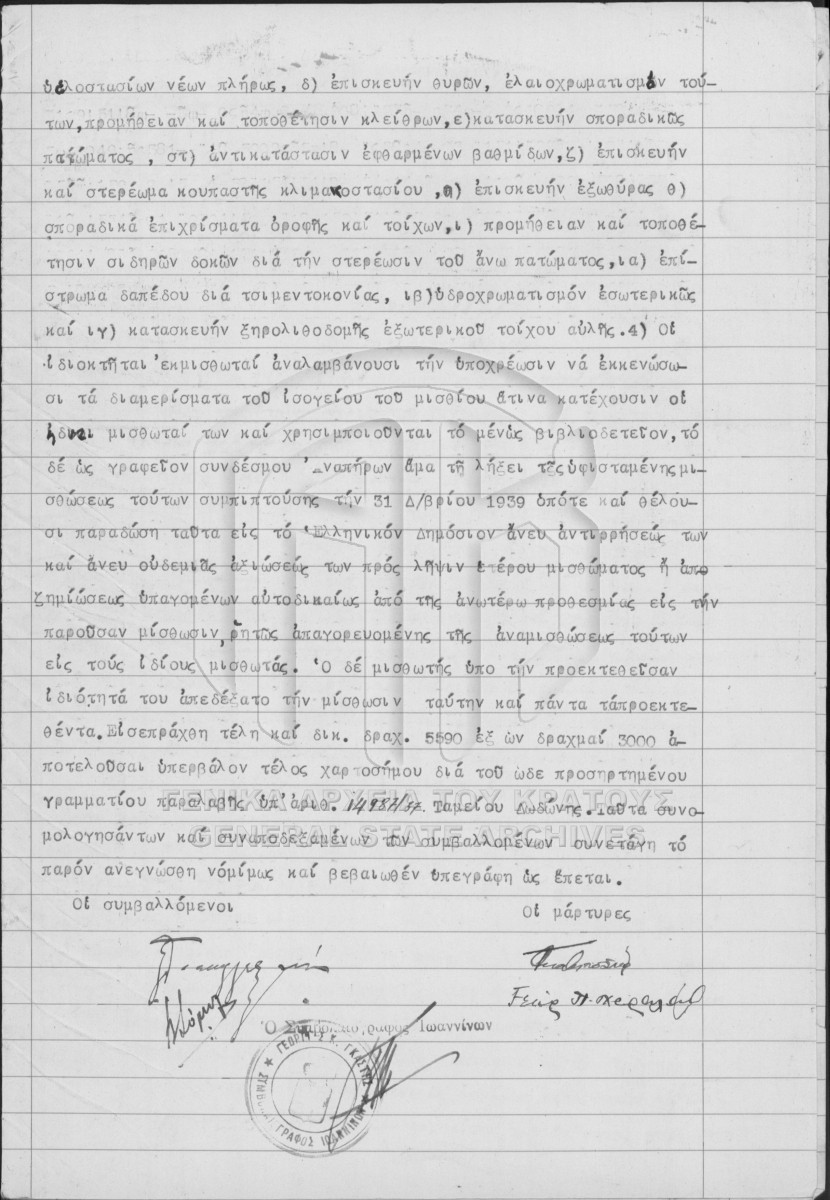 ὑαλοστασίων νέων πλήρως, δ) ἐπισκευήν θυρῶν, ἐλαιοχρωματισμόν τού-
των,προμήθειαν καί τοποθέτησιν κλείθρων,ε)κατασκευήν σποραδικῶς
πατώματος , στ) ἀντικατάστασιν ἐφθαρμένων βαθμίδων,ζ) ἐπισκευήν
καί στερέωμα κουπαστῆς κλιμακοστασίου ,η) ἐπισκευήν ἐξωθύρας θ)
σποραδικά ἐπιχρίσματα ὀροφῆς καί τοίχων,ι) προμήθειαν καί τοποθέ-
τησιν σιδηρῶν δοκῶν διά τήν στερέωσιν τοῦ ἄνω πατώματος,ια) ἐπί-
στρωμα δαπέδου διά τσιμεντοκονίας, ιβ)ὑδροχρωματισμόν ἐσωτερικῶς
καί ιγ) κατασκευήν ξηρολιθοδομῆς ἐξωτερικοῦ τοίχου αὐλῆς.4) Οἱ
ἰδιοκτῆται ἐκμισθωταί ἀναλαμβάνουσι τήν ὑποχρέωσιν νά ἐκκενώσω-
σι τά διαμερίσματα τοῦ ἰσογείου τοῦ μισθίου ἅτινα κατέχουσιν οἱ
μισθωταί των καί χρησιμποιοῦνται τό μένὡς βιβλιοδετεῖον,τό
δέ ὡς γραφεῖον συνδέσμου Ἀναπήρων ἅμα τῇ λήξει τῆς ὑφισταμένης μι-
σθώσεως τούτων συμπιπτούσης τήν 31 Δ/βρίου 1939 ὁπότε καί θέλου-
σι παραδώση ταῦτα εἰς τό Ἑλληνικόν Δημόσιον ἄνευ ἀντιρρήσεώς των
καί ἄνευ οὐδεμιᾶς ἀξιώσεώς των πρός λῆψιν ἑτέρου μισθώματος ἤ ἀπο
ζημιώσεως ὑπαγομένων αὐτοδικαίως ἀπό τῆς ἀνωτέρω προθεσμίας εἰς τήν
παροῦσαν μίσθωσιν,ρητῶς ἀπαγορευομένης τῆς ἀναμισθώσεως τούτων
εἰς τούς ἰδίους μισθωτάς. Ὁ δέ μισθωτής ὑπο τήν προεκτεθεῖσαν
ἰδιότητά του ἀπεδέξατο τήν μίσθωσιν ταύτην καί πάντα τάπροεκτε-
θέντα.Εἰσεπράχθη τέλη καί δικ. δραχ. 5590 ἐξ ὧν δραχμαί 3000 ἀ-
ποτελοῦσαι ὑπερβάλον τέλος χαρτοσήμου διά τοῦ ὧδε προσηρτημένου
γραμματίου παραλαβῆς ὑπ'ἀριθ. Ταμείου Δωδώνης.Ταῦτα συνο-
μολογησάντων καί συναποδεξαμένων τῶν συμβαλλομένων συνετάγη τό
παρόν ἀνεγνώσθη νόμίμως καί βεβαιωθέν ὑπεγράφη ὡς ἕπεται.
Οἱ συμβαλλόμενοι Οἱ μάρτυρες
Ὁ Συμβολαιογράφος Ἰωαννίνων
ΓΕΩΡΓΙΟΣ Κ. ΓΚΑΣΤΗΣ
ΣΥΜΒΟΛΑΙΟΓΡΑΦΟΣ ΙΩΑΝΝΙΝΩΝ
ΓΕΝΙΚΑ ΑΡΧΕΙΑ ΤΟΥ ΚΡΑΤΟΥΣ
GENERAL STATE ARCHIVES